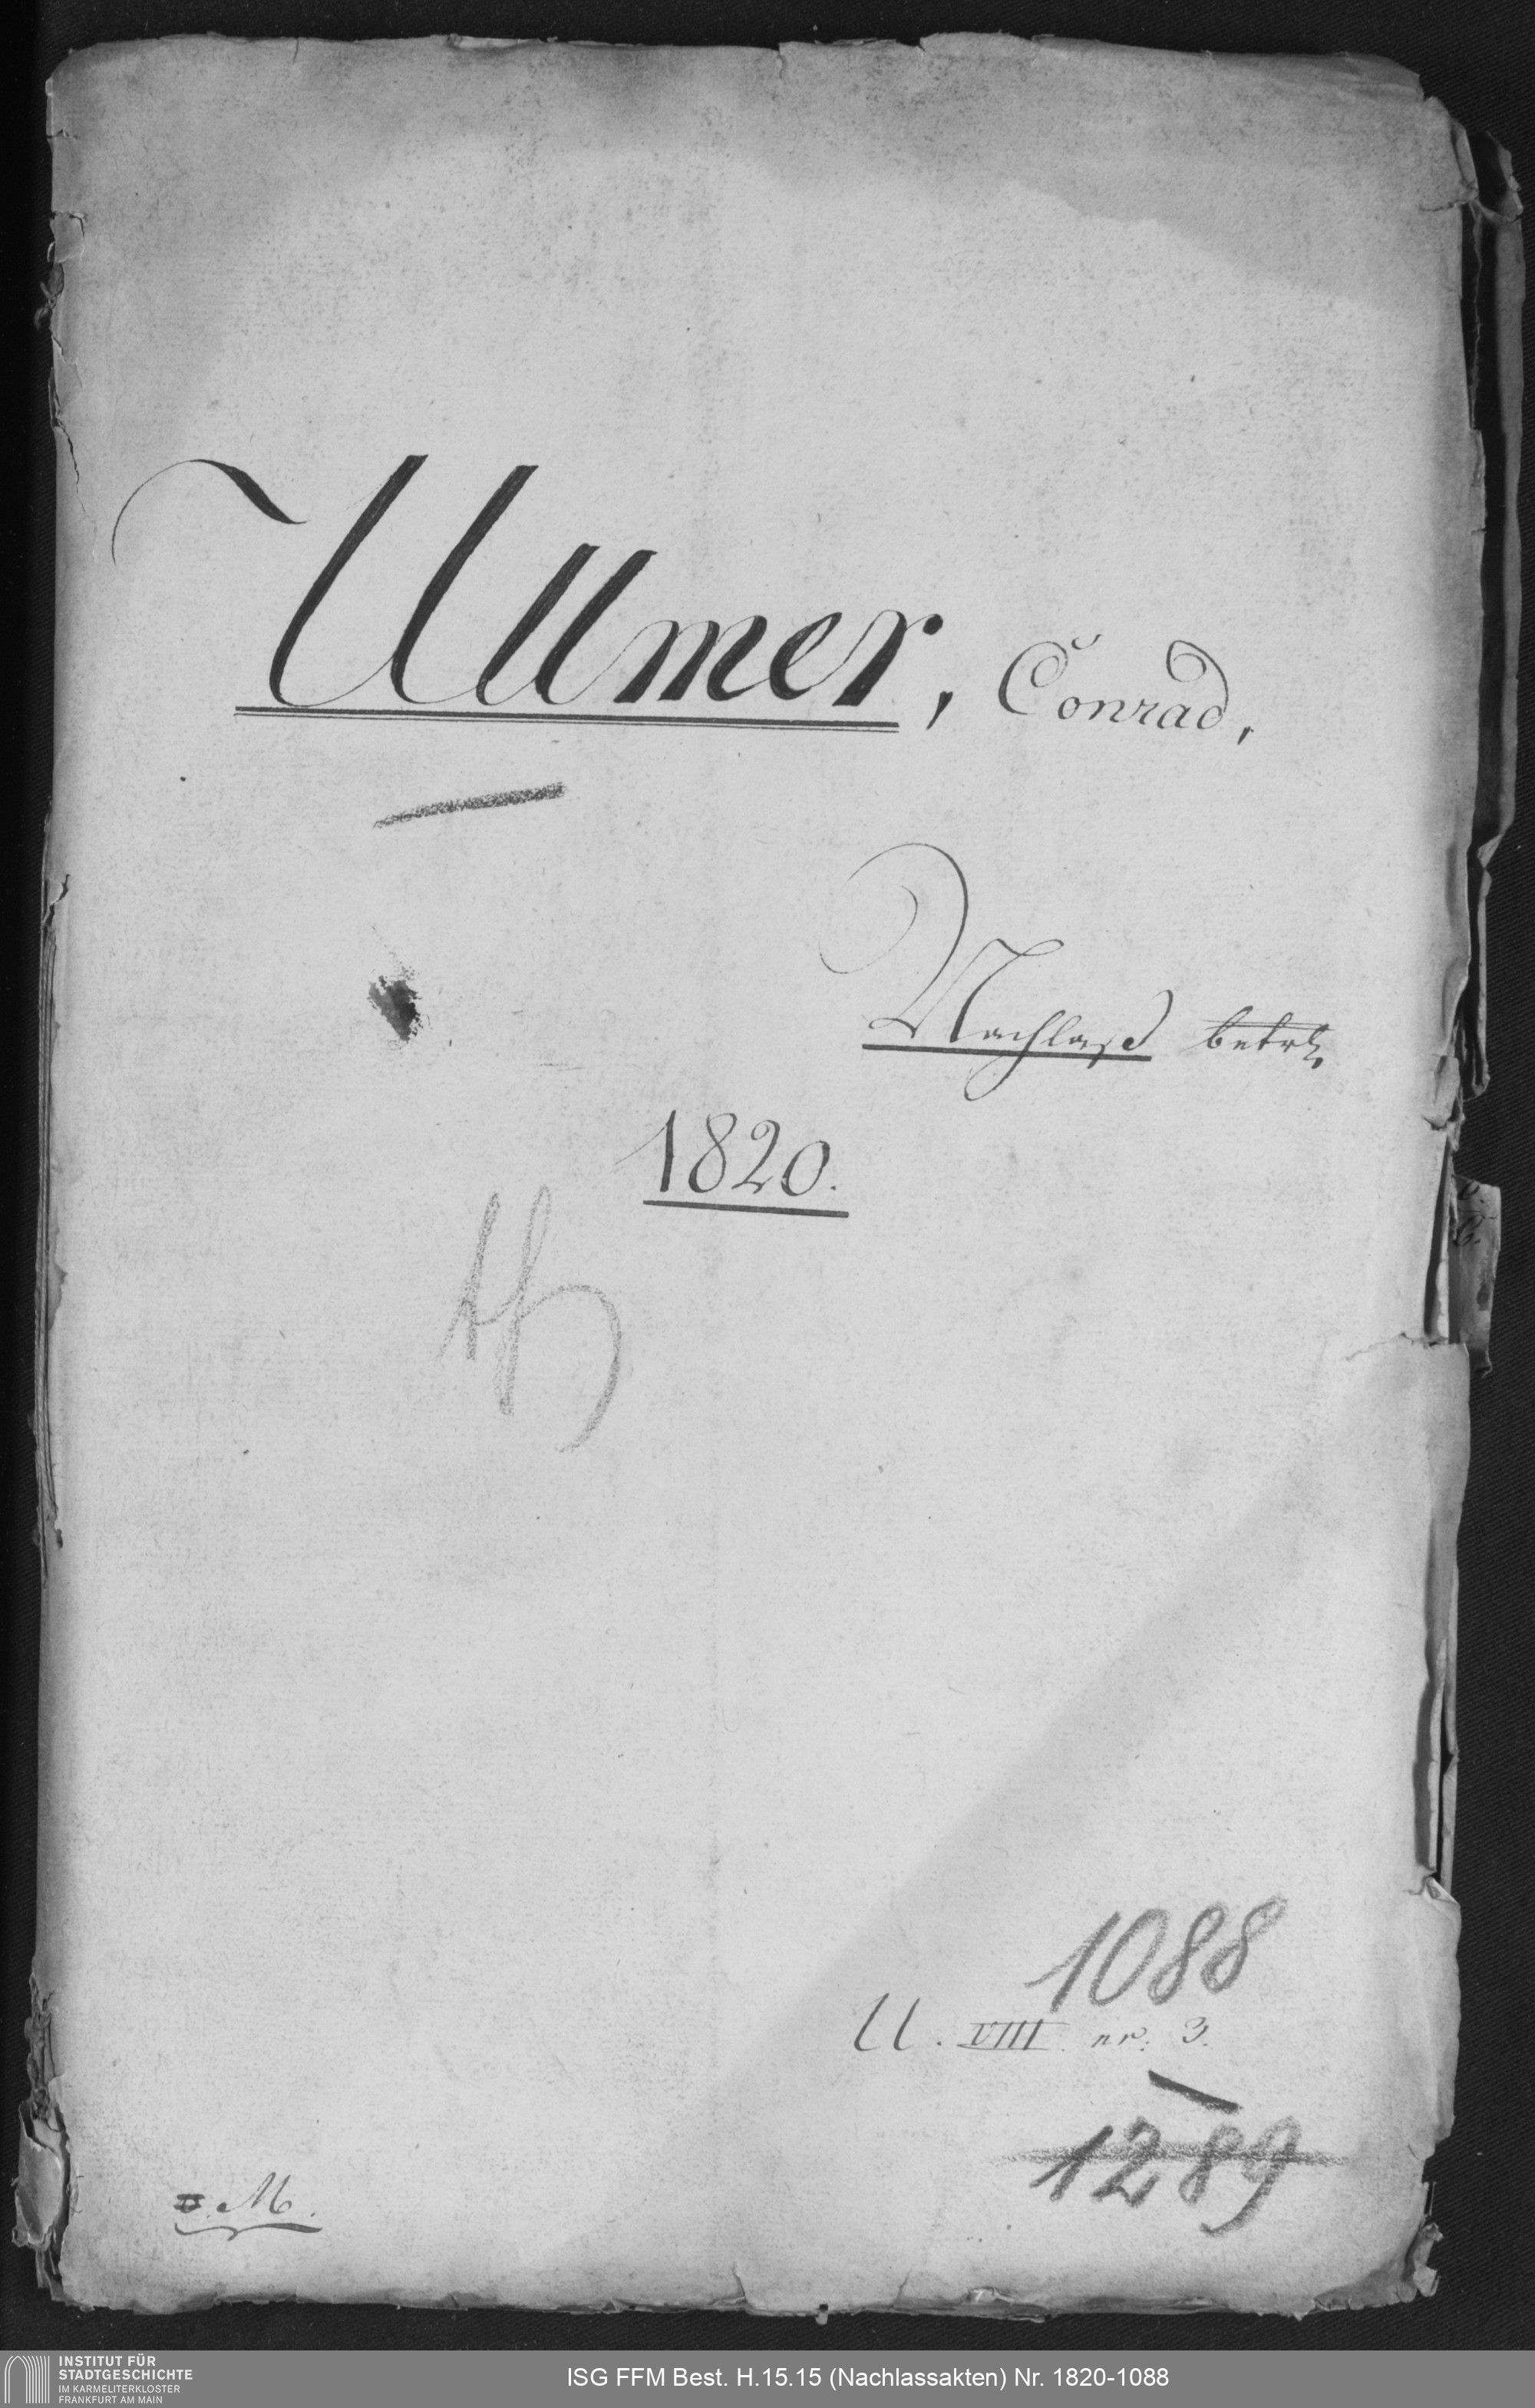 Ullmer, Conrad,
Nachlaß betr.
1820.
1088
U. VIII. nr: 3.
1289
M.
INSTITUT FÜR
STADTGESCHICHTE
IM KARMELITERKLOSTER
FRANKFURT AM MAIN
ISG FFM Best. H.15.15 (Nachlassakten) Nr. 1820-1088